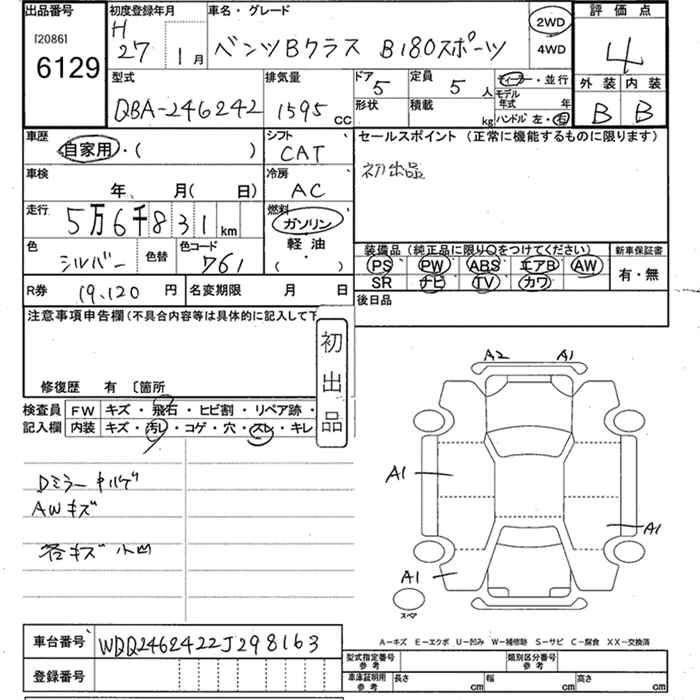 出品番号
[2086]
6129
初度登録年月
H 27 1月
車名・グレード
ベンツBクラス B180スポーツ
2WD
4WD
評価点
4
外装 内装
B B
型式
DBA-246242
排気量
1595 cc
ドア 5
形状
定員 5 人
積載 kg
ディーラー・並行
モデル年式 年
ハンドル 左・右
車歴
自家用・( )
シフト
CAT
セールスポイント (正常に機能するものに限ります)
初出品
車検
年 月( 日)
冷房
AC
走行
5万6千831km
燃料
ガソリン
軽油
( ・ )
色
シルバー
色替
色コード
761
装備品(純正品に限り○をつけてください)
PS PW ABS エアB AW
SR ナビ TV カワ
新車保証書
有・無
R券 19,120 円
名変期限 月 日
後日品
注意事項申告欄(不具合内容等は具体的に記入して下
初出品
修復歴 有 〔箇所
検査員記入欄
FW キズ・飛石・ヒビ割・リペア跡・
内装 キズ・汚レ・コゲ・穴・スレ・キレ
A2 A1
A1
A1
A1
スペア
Dミラー
AWキズ
各キズ 小凹
A-キズ E-エクボ U-凹み W-補修跡 S-サビ C-腐食 XX-交換済
車台番号 WDD2462422J298163
登録番号
型式指定番号 参考
類別区分番号 参考
車庫証明用 参考 長さ cm 幅 cm 高さ cm